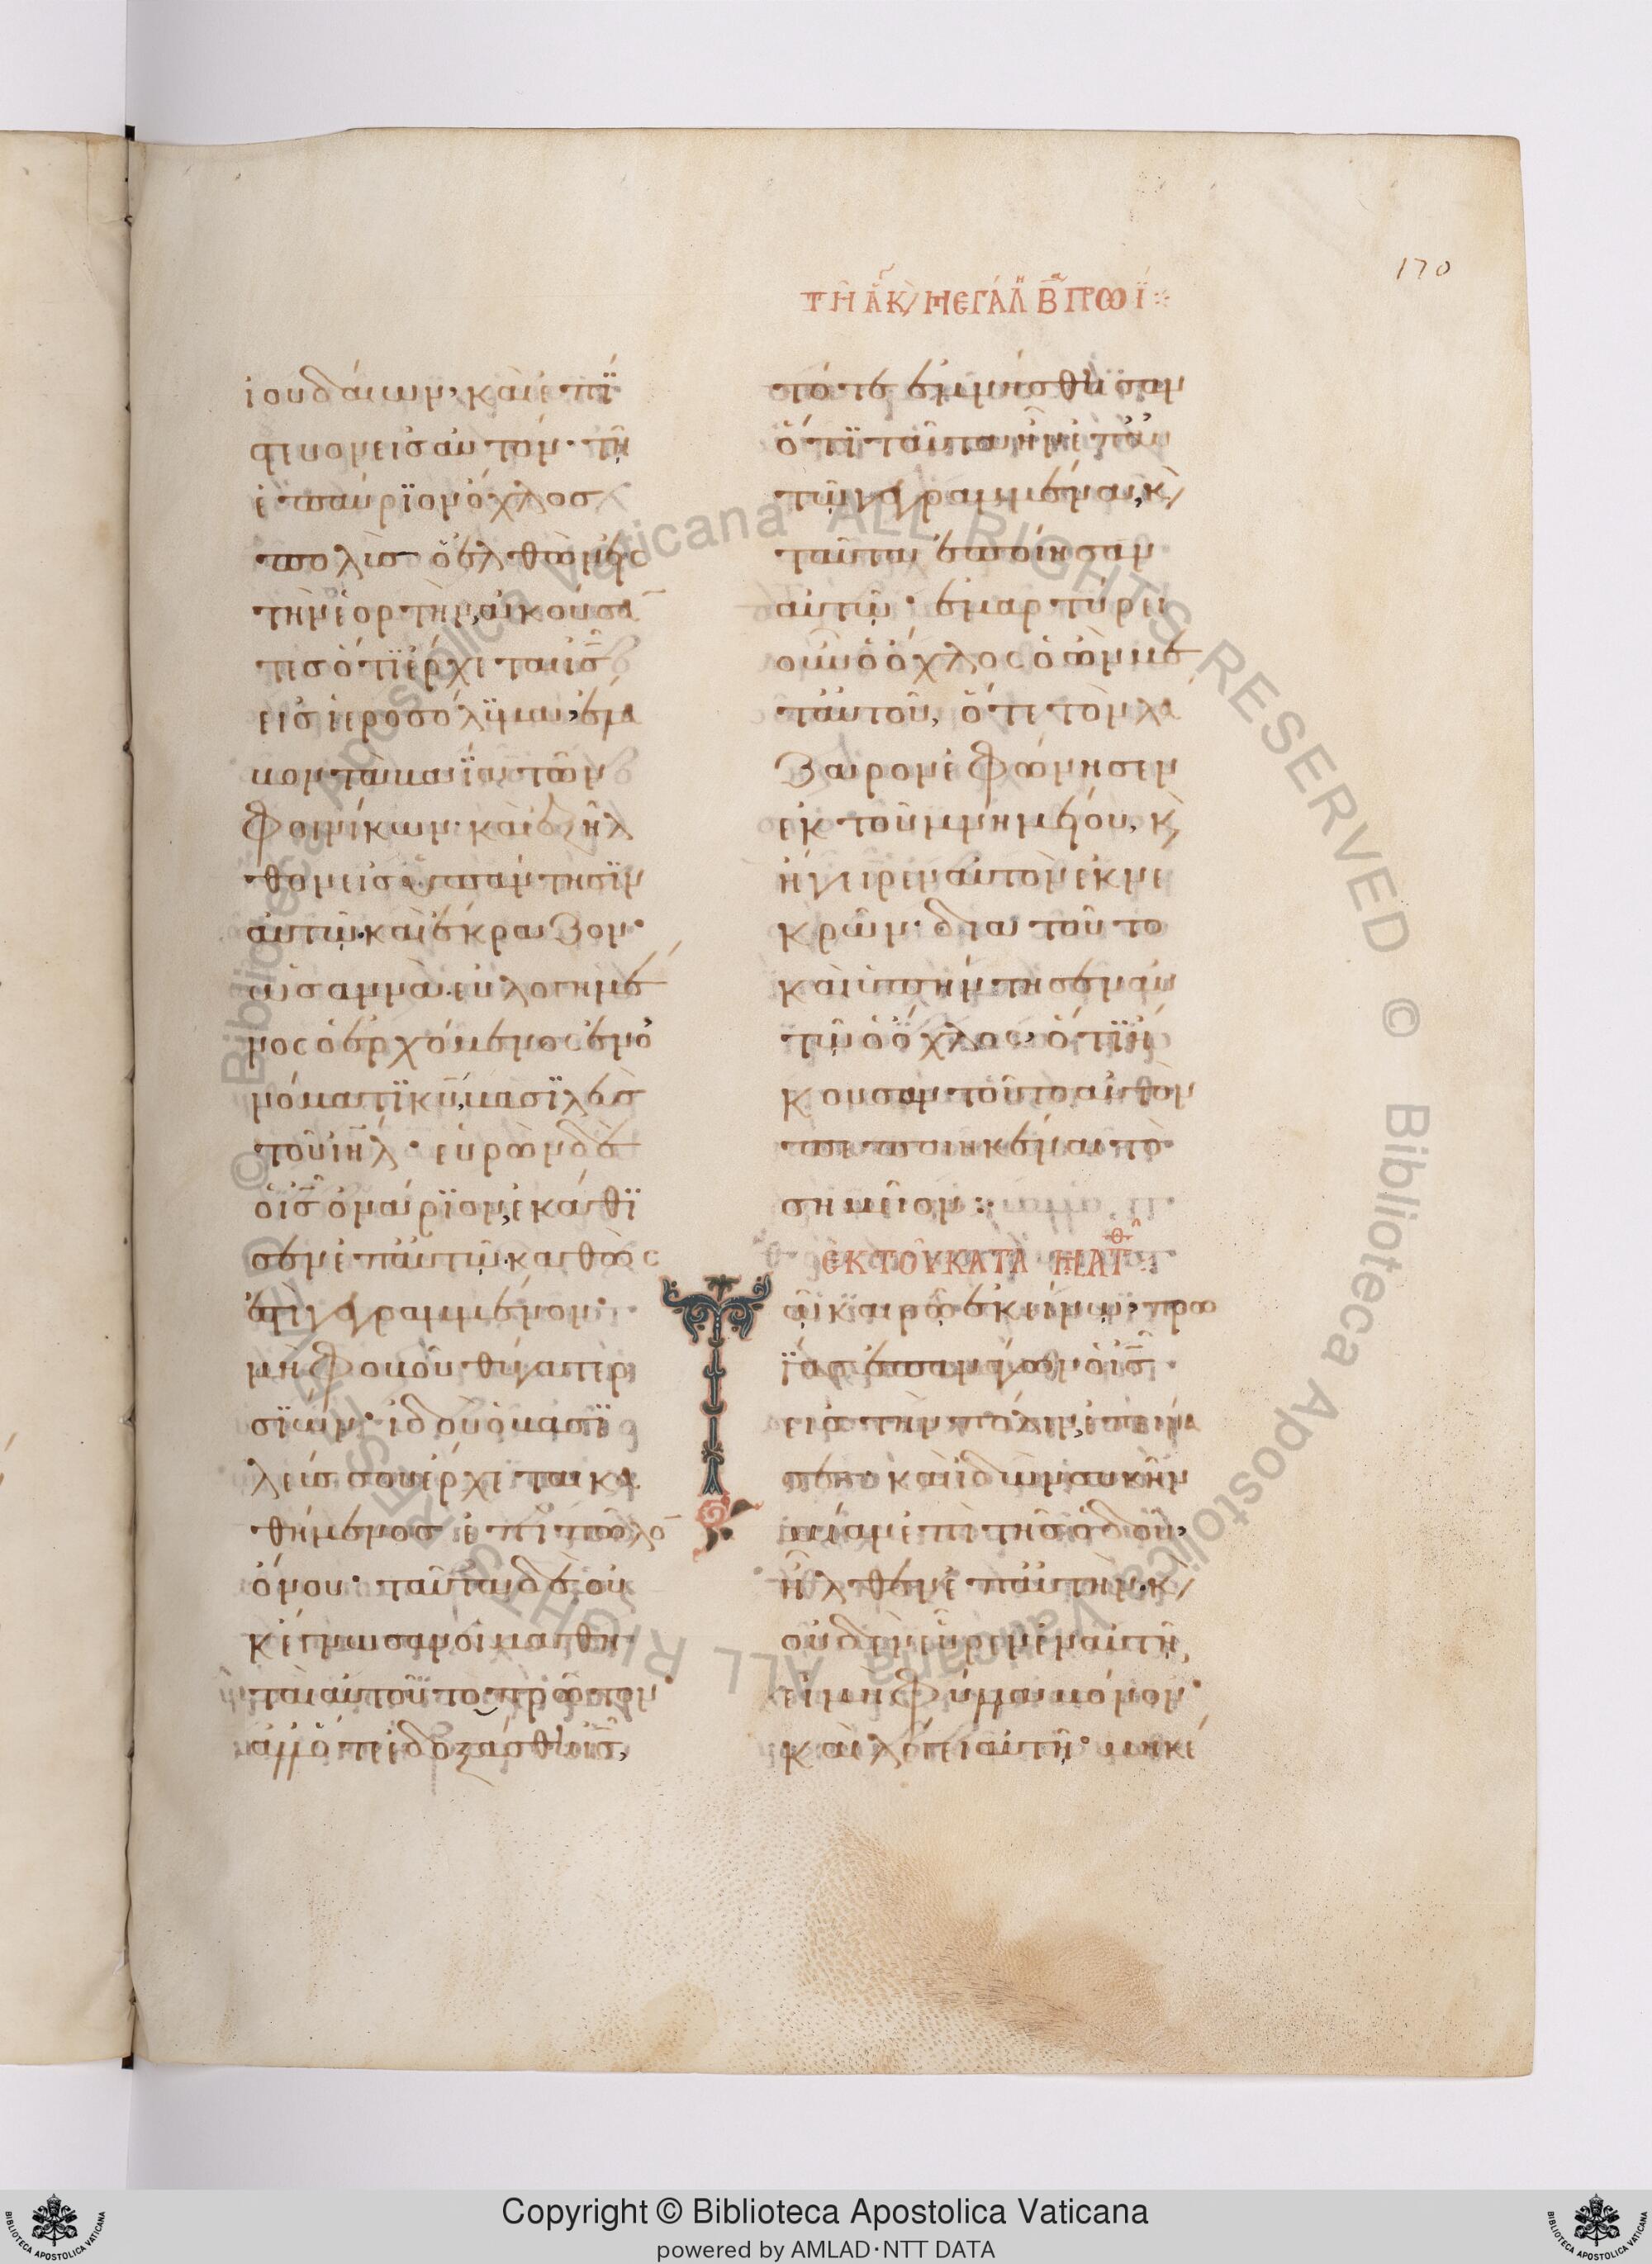 170
τῆ ἁγ κ, μεγάλη β πρωΐ:
ἰουδαίων, καὶ ἐπί
στευον εἰς αὐτόν. τῆ
ἐπαύριον ὄχλος
πολὺς ὁ ἐλθὼν εἰς
τὴν ἑορτὴν, ἀκούσα
τες ὅτι ἔρχεται ις
εἰς ἱεροσόλυμα, ἔλα
βον τὰ βαΐα τῶν
φοινίκων. καὶ ἐξῆλ
θον εἰς ἀπάντησιν
αὐτῷ. καὶ ἔκραζον.
ὡσαννὰ. εὐλογημέ
νος ὁ ἐρχόμενος ἐν ὀ
νόματι κυ, βασιλεὺς
τοῦ ιηλ. εὑρὼν δὲ
ὁ ις ὀνάριον, ἐκάθι
σεν ἐπ' αὐτῷ. καθώς
ἐστι γεγραμμένον.
μὴ φοβοῦ θύγατερ
σιών. ἰδοὺ ὁ βασι
λεύς σου ἔρχεται κα
θήμενος ἐπὶ πῶλο
ὄνου. ταῦτα δὲ οὐ
κ ἔγνωσαν οἱ μαθη
ταὶ αὐτοῦ τὸ πρῶτον.
ἀλλ' ὅτε ἐδοξάσθη ὁ ις,
τότε ἐμνήσθησαν
ὅτι ταῦτα ἦν ἐπ' αὐ
τῷ γεγραμμένα, κ
ταῦτα ἐποίησαν
αὐτῷ. ἐμαρτύρει
οὖν ὁ ὄχλος ὁ ὢν με
τ' αὐτοῦ, ὅτε τὸν λα
ζαρον ἐφώνησεν
ἐκ τοῦ μνημείου, κ
ἤγειρεν αὐτὸν ἐκ νε
κρῶν. δια τοῦτο
καὶ ὑπήντησεν αὐ
τῷ ὁ ὄχλος, ὅτι ἤ
κουσαν τοῦτο αὐτὸν
πεποιηκέναι τὸ
σημεῖον:
ἐκ τοῦ κατὰ ματθ
Τῷ καιρῷ ἐκείνῳ, πρω
ΐας ἐπανάγων ὁ ις
εἰς τὴν πόλιν, ἐπείνα
σεν. καὶ ἰδὼν συκῆν
μίαν ἐπὶ τῆς ὁδοῦ,
ἦλθεν ἐπ' αὐτὴν. κ
οὐδὲν εὗρεν ἐν αὐτῇ
εἰ μὴ φύλλα μόνον.
καὶ λέγει αὐτῇ. μηκέ
Copyright © Biblioteca Apostolica Vaticana
powered by AMLAD·NTT DATA